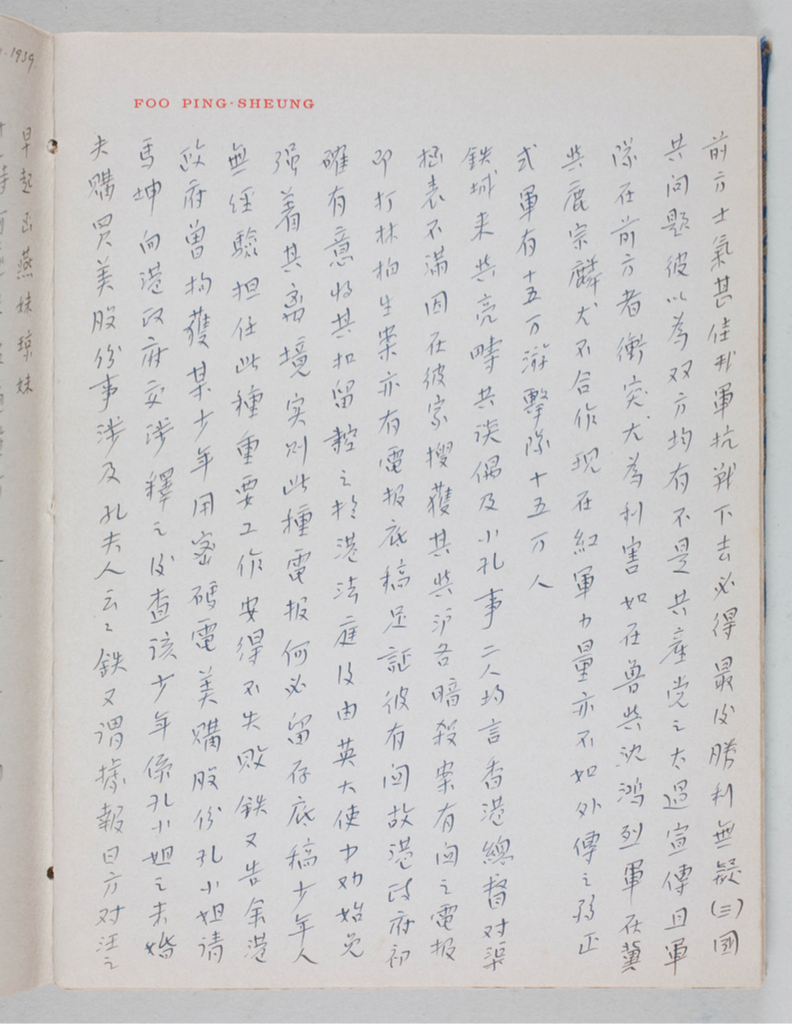 FOO PING-SHEUNG
前方士氣甚佳我軍抗戰下去必得最後勝利無疑(三)國
共問題彼以為双方均有不是共產党之太過宣傳且軍
隊在前方者衝突尤為利害如在魯與沈鴻烈軍在冀
與鹿宗麟尤不合作現在紅軍力量亦不如外傳之強正
式軍有十五万游擊隊十五万人
鉄城来與亮疇共談偶及小孔事二人均言香港總督对渠
極表不滿因在彼家搜獲其與沪各暗殺案有関之電报
即打林柏生案亦有電报底稿足証彼有関故港政府初
確有意將其扣留控之於港法庭後由英大使力劝始免
强着其离境实则此種電报何必留存底稿少年人
無經驗担任此種重要工作安得不失敗鉄又告余港
政府曾拘獲某少年用密碼電美購股份孔小姐請
馬坤向港政府交涉釋之後查該少年係孔小姐之未婚
夫購買美股份事涉及孔夫人云云鉄又謂據報日方对汪之
1939
早起函燕妹琼妹